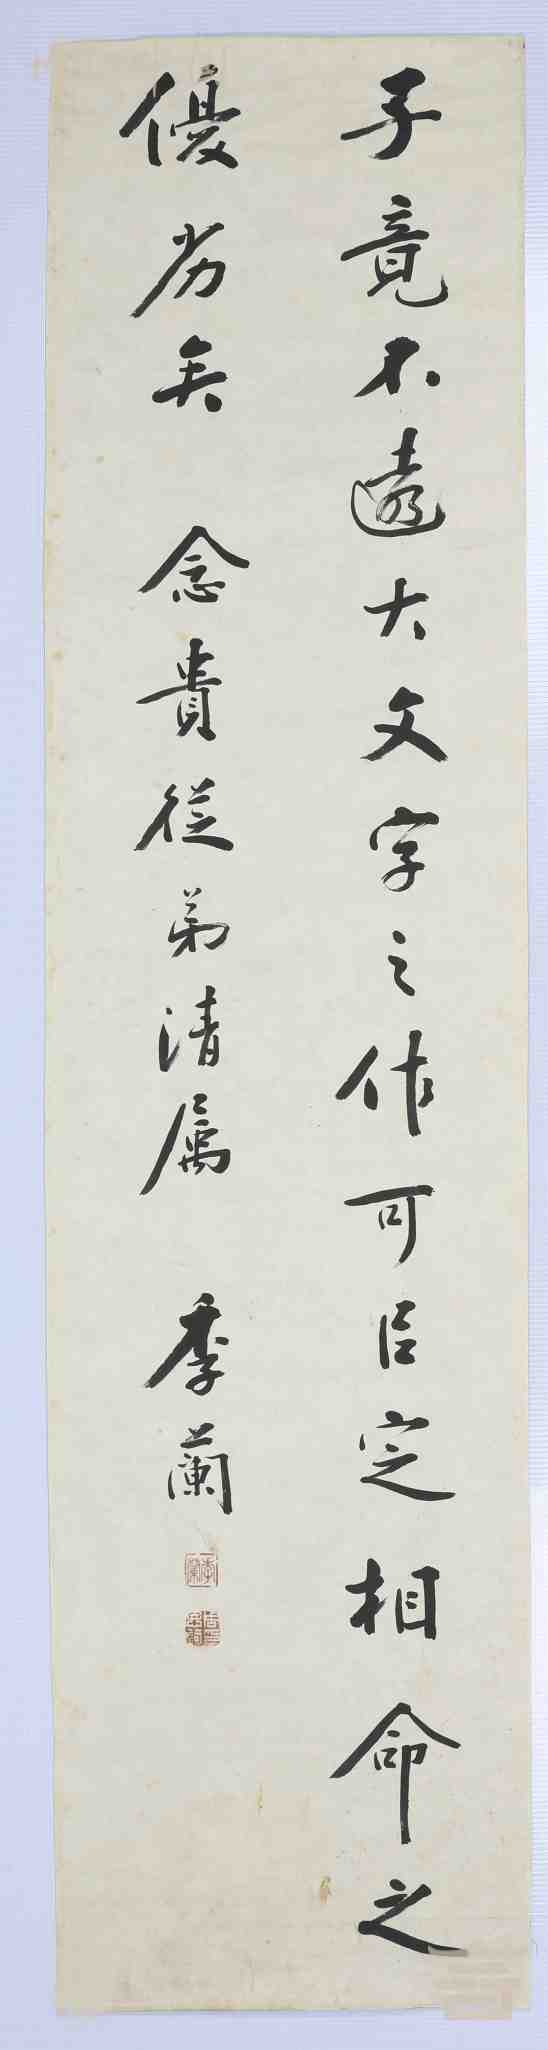 子竟不遠大文字之作可㠯定相命之
優劣矣 念貴從弟清属 季蘭
季蘭